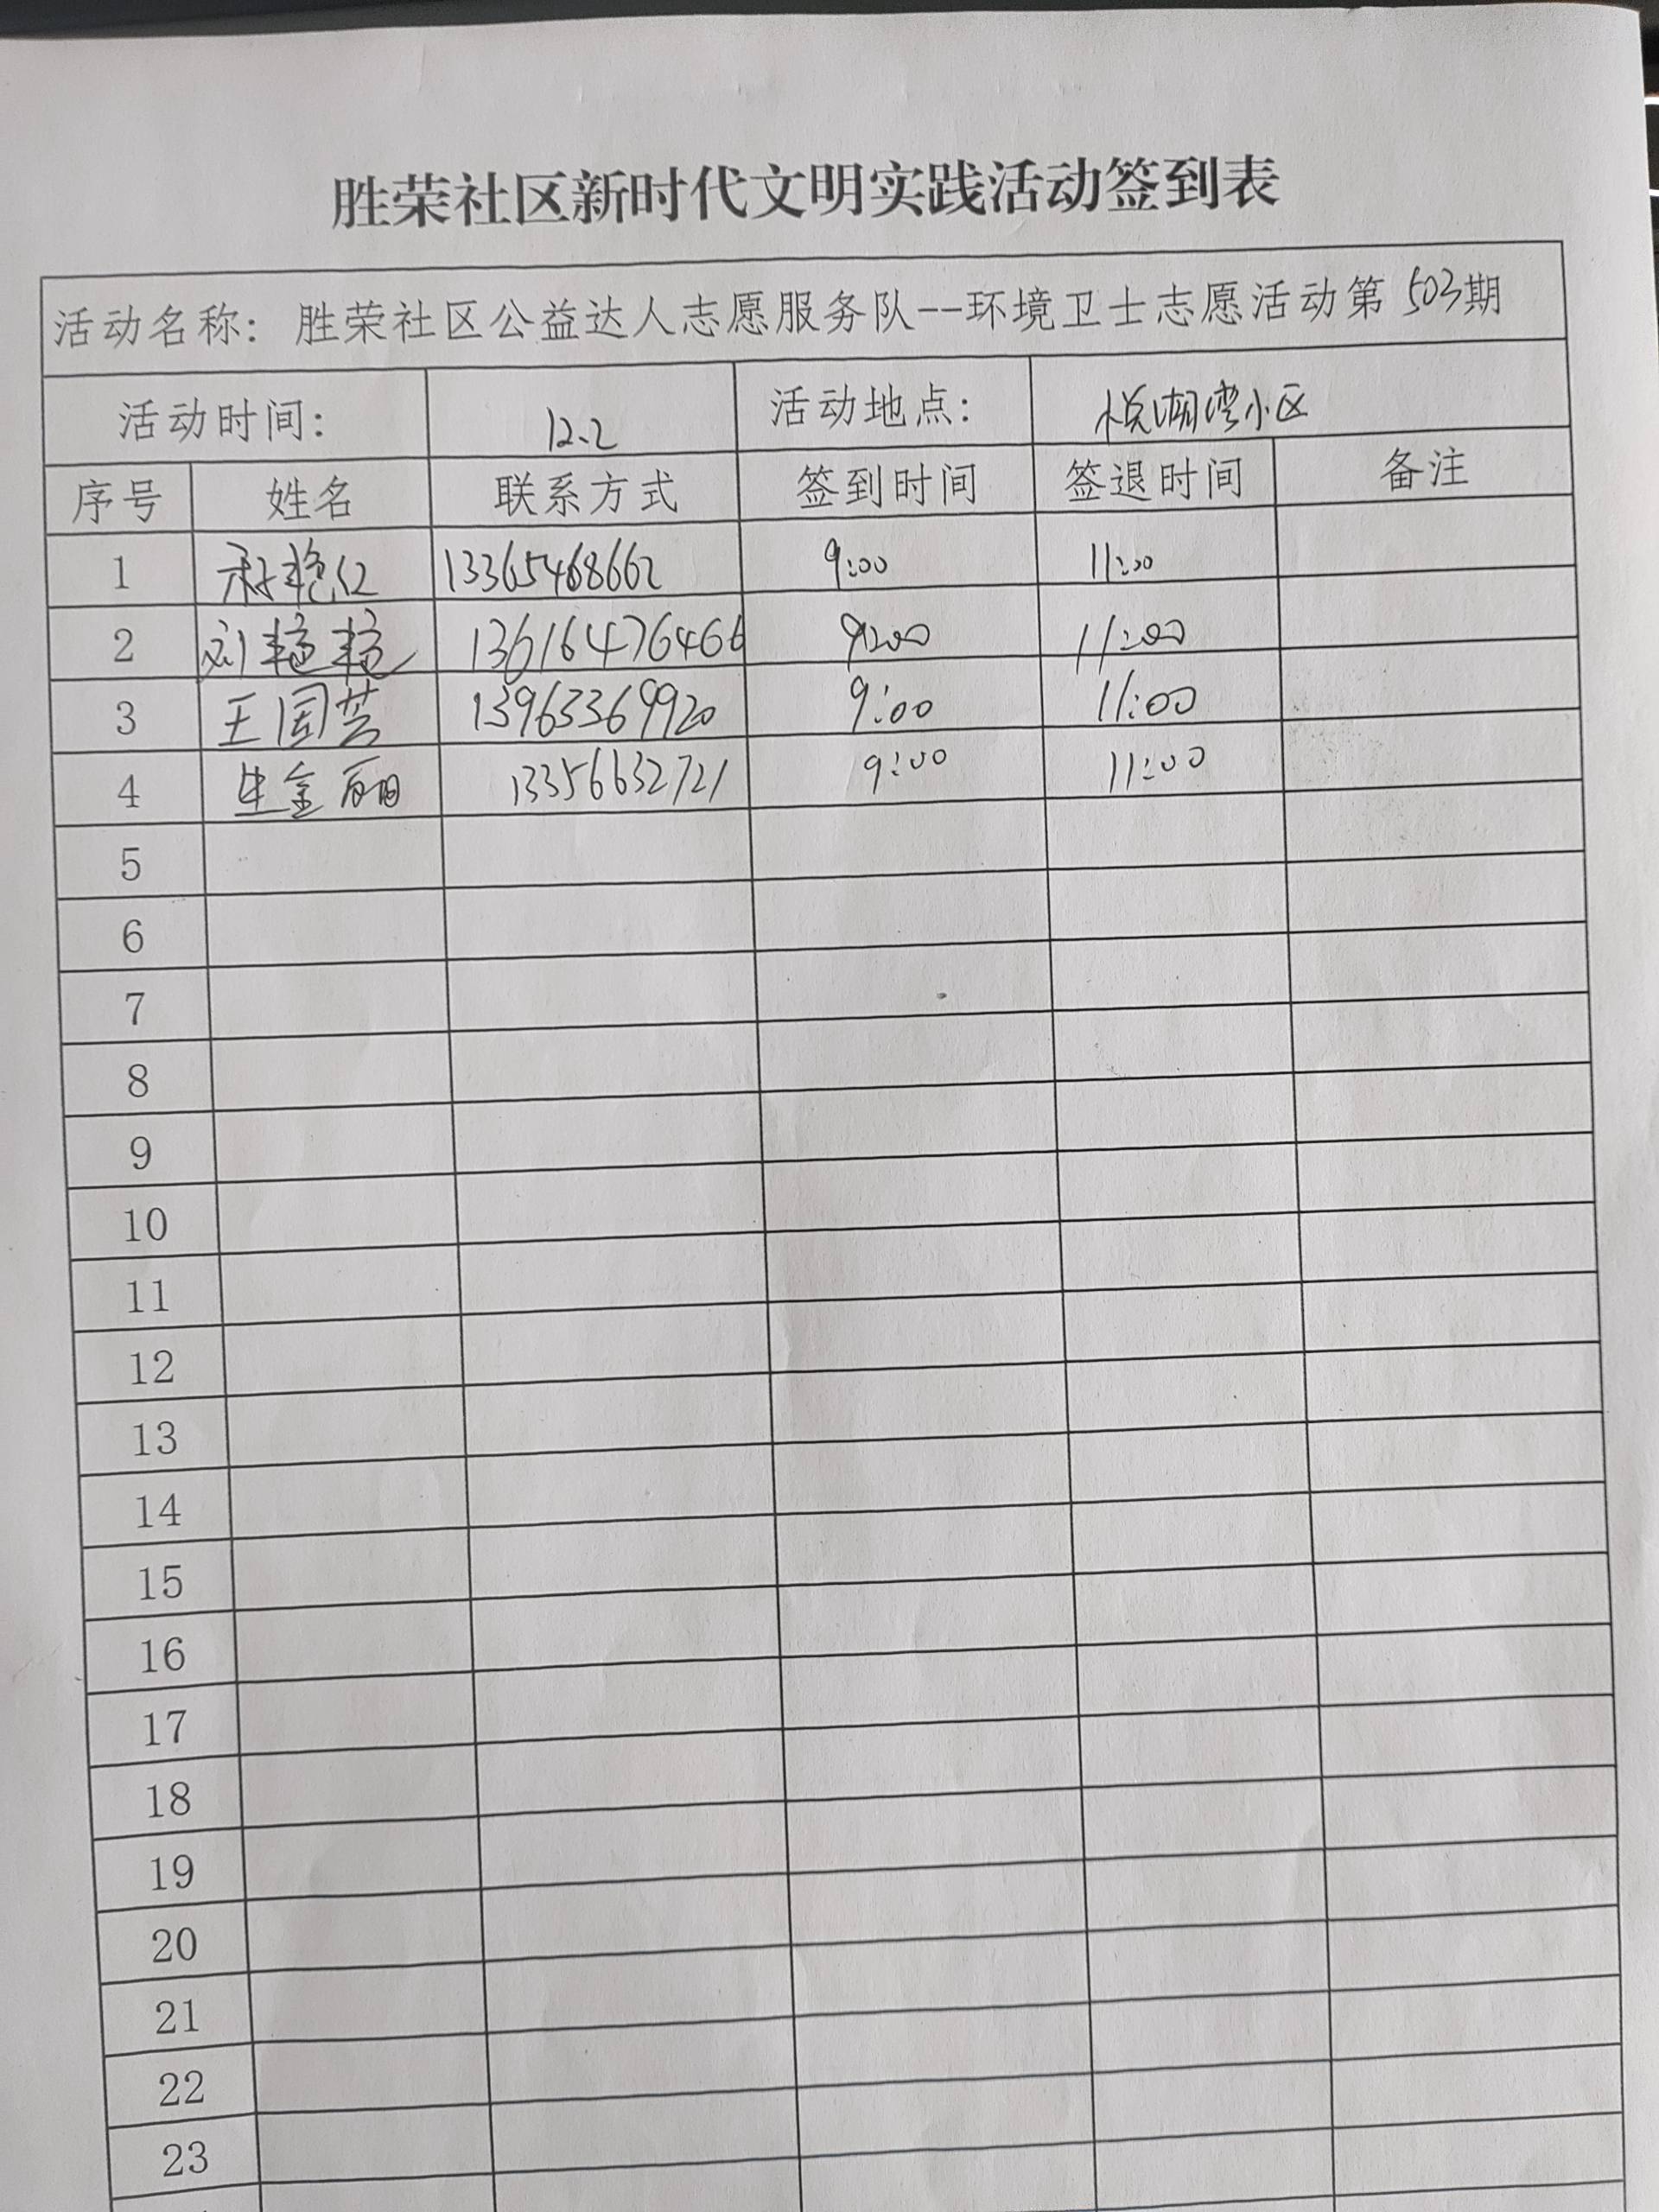 胜荣社区新时代文明实践活动签到表
活动名称：胜荣社区公益达人志愿服务队--环境卫士志愿活动第503期
活动时间： 12.2 活动地点： 悦湖湾小区
序号 姓名 联系方式 签到时间 签退时间 备注
1 13365468662 9:00 11:00
2 刘艳艳 13616476466 9:00 11:00
3 王国芸 13963369920 9:00 11:00
4 生金丽 13356632721 9:00 11:00
5
6
7
8
9
10
11
12
13
14
15
16
17
18
19
20
21
22
23